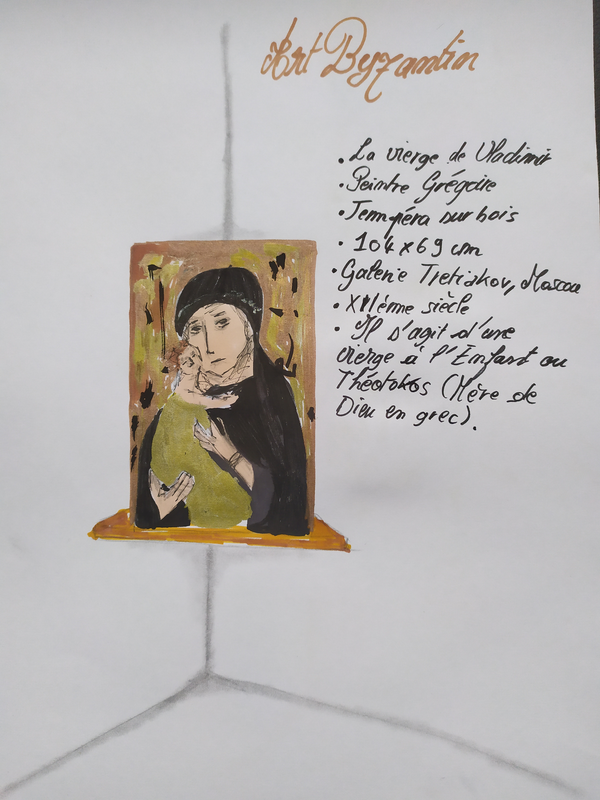 Art Byzantin
• La vierge de Vladimir
• Peintre Grégoire
• Tempéra sur bois
• 104 x 69 cm
• Galerie Tretiakov, Moscou
• XIIème siècle
• Il s'agit d'une
vierge à l'Enfant ou
Théotokos (Mère de
Dieu en grec).